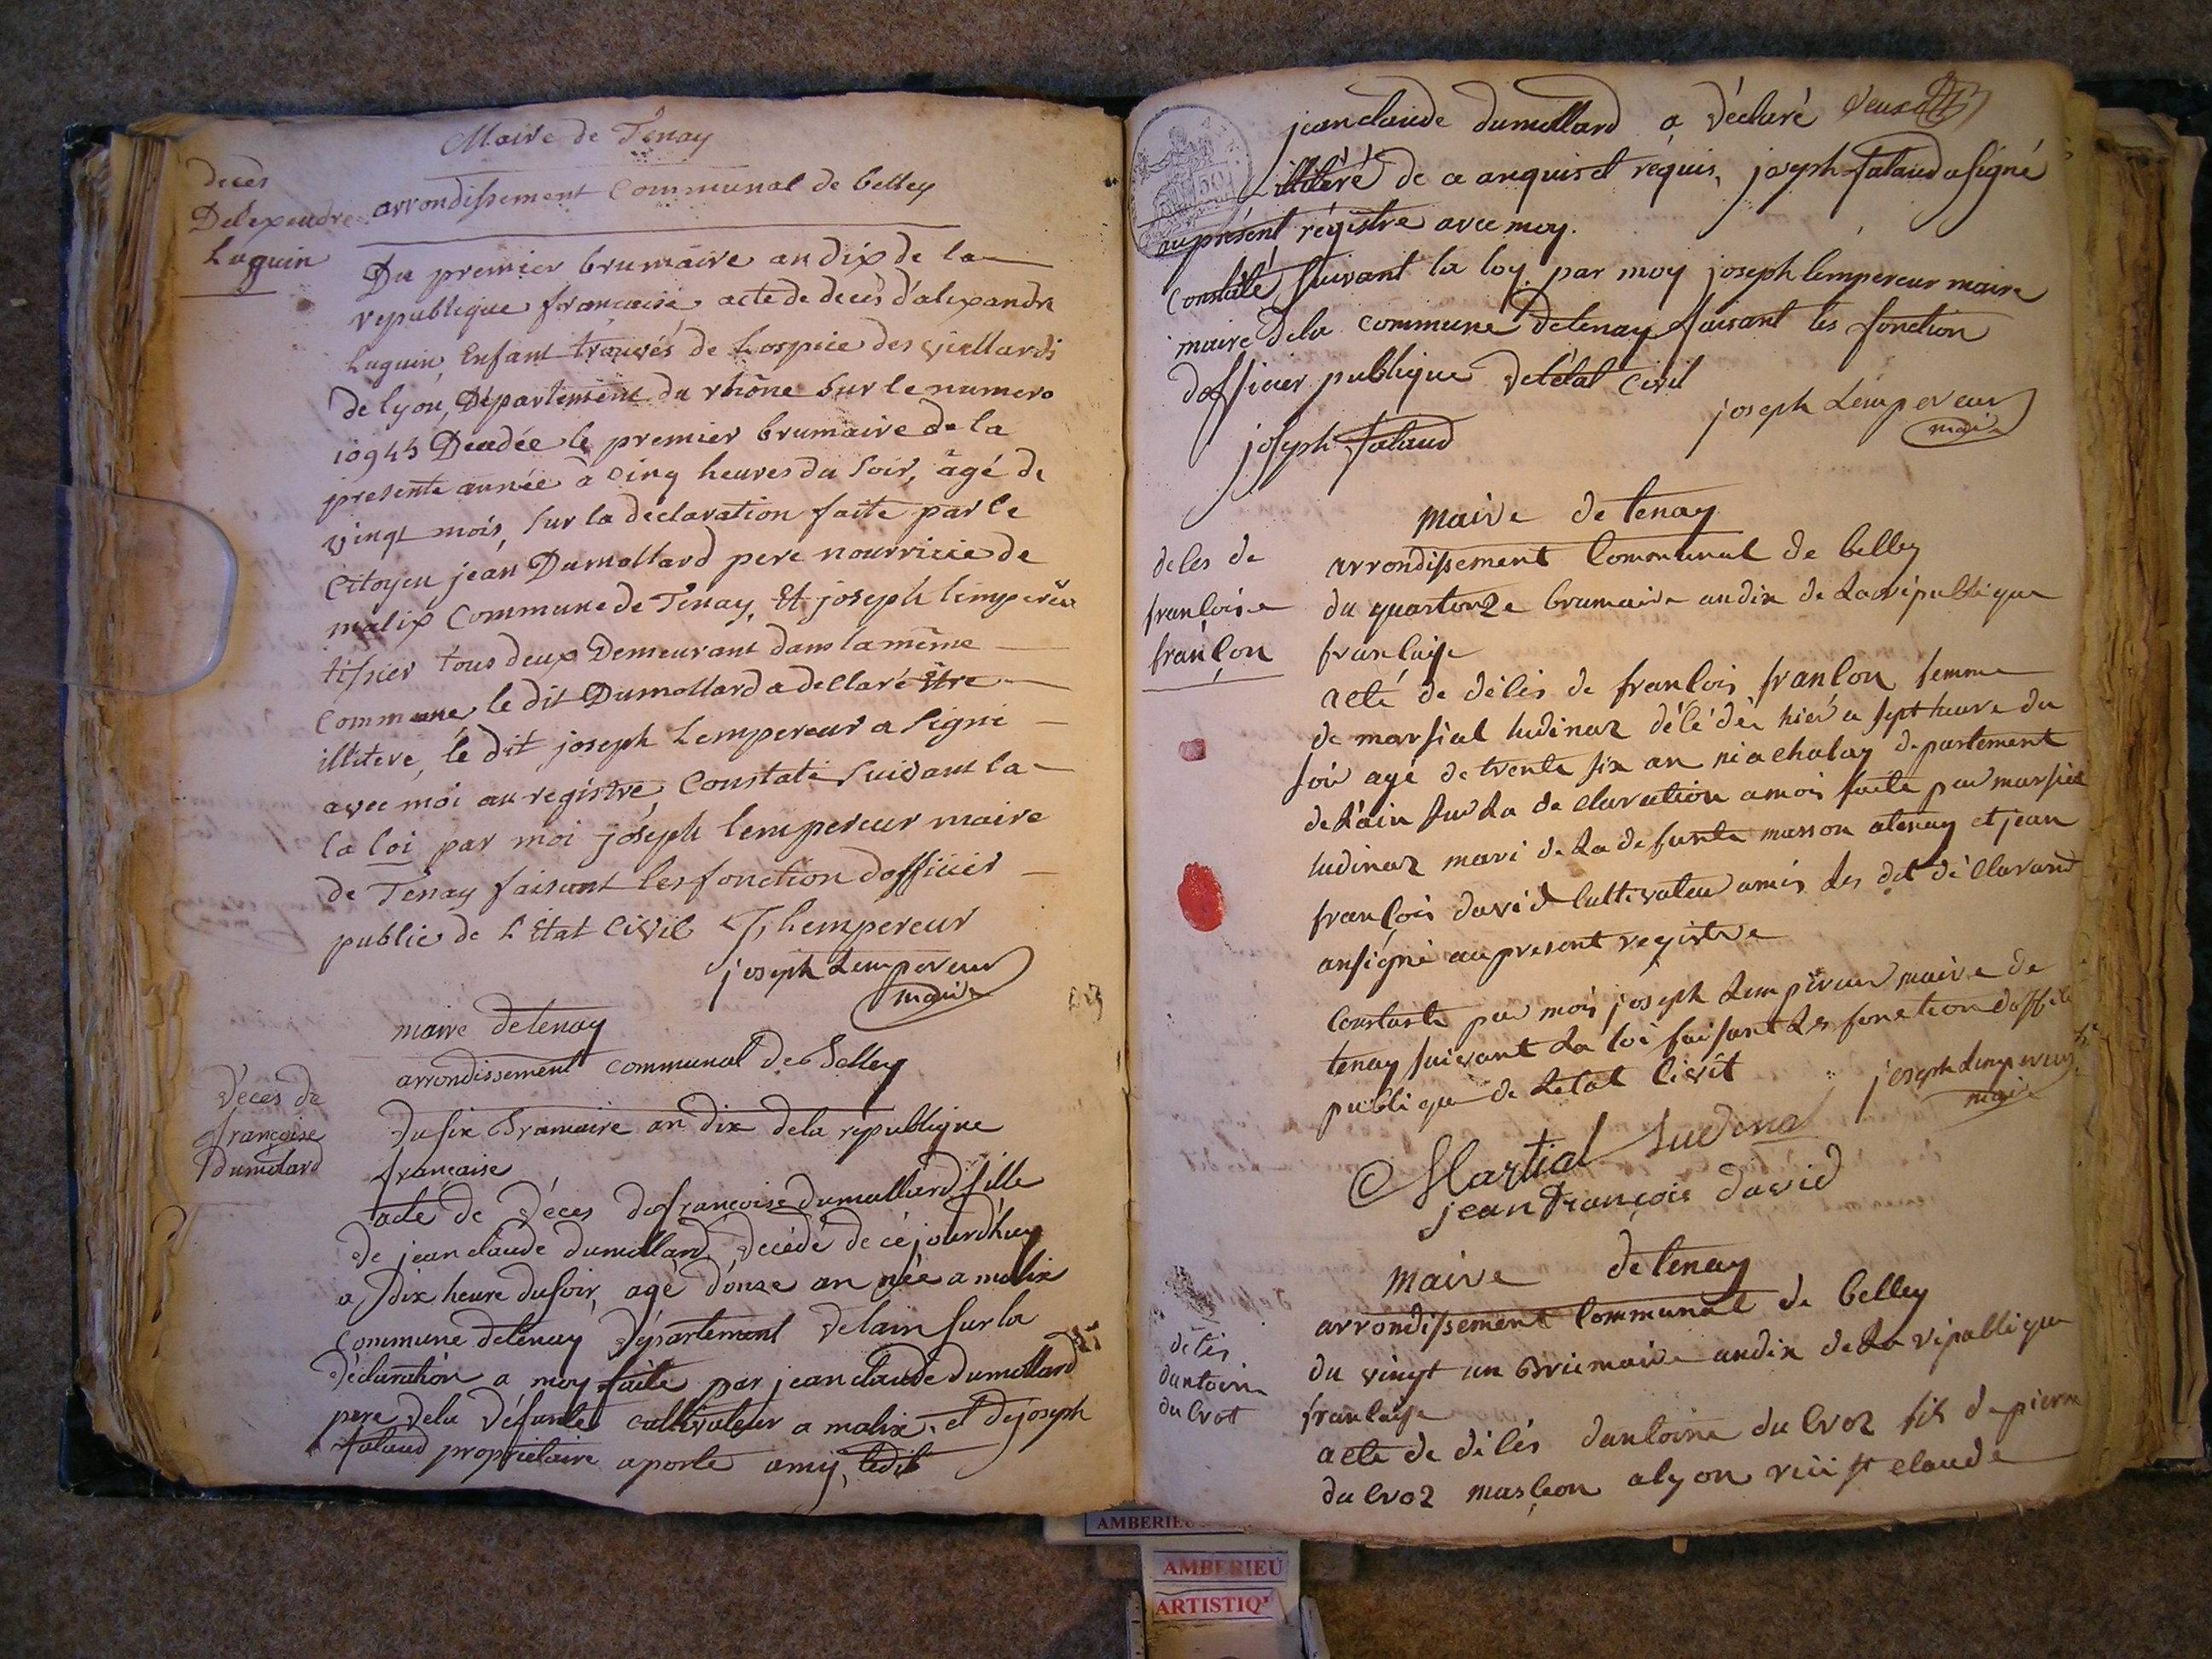 Maire de Tenay
deces
Delexendre
Luguin
arrondissement Communal de belley
Du premier brumaire an dix de la
republique francaise acte de decès d'alexandre
Luguin, Enfant trouvés de Lospice des viellards
de lyon, Département du rhône Sur le numero
10945 Decedée le premier brumaire de la
presente année à cinq heures du Soir, âgé de
vingt mois, Sur la déclaration faite par le
Citoyen jean Dumollard pere nourricie de
malix Commune de Tenay, Et joseph lempereur
tissier tous deux Demeurant dans la même
commune, le dit Dumollard a declaré être
illitere, le dit joseph Lempereur a Signé
avec moi au registre, Constaté Suivant la
la loi par moi joseph lempereur maire
de Tenay faisant les fonction dofficier
public de L'Etat Civil J, Lempereur
joseph Lempereur
maire
maire detenay
arrondissement communal de Belley
Déces de
françoise
Dumolard
du six Bramaire an dix dela republigne
française
acte de Déces de françoise dumollard fille
de jean claude dumollard, decédé de cejourdhuy
a dix heure du soir, agé donze an née a malix
commune detenay Département delain sur la
Déclaration a moy faite par jean claude Dumollard
pere dela défunte cultivateur a malix, et de joseph
falaud proprietaire aporte amy, ledit
jean claude dumollard a déclaré
illitéré de ce anquis et requis, joseph falaud a signé
au présent régistre avec moy.
constaté suivant la loy par moy joseph lempereur maire
maire dela commune detenay faisant les fonction
dofficier publique deletat civil
joseph Lempereur
maire
joseph falaud
maire de tenay
deces de
françoise
françon
arrondissement Communal de belley
du quartorze brumaire an dix de La république
française
acte de décés de françois françon femme
de marsial ludinaz décédée hier a sept heure du
soir agé de trente six an né a chalay departement
de Lain sur La declaration a moi faite par marsial
ludinaz mari de La defunte masson atenay et jean
françois david cultivateur amis Les dit déclarand
ansigné au present registre
constaste par mois joseph Lempereur maire de
tenay suivant La loi faisant Les fonction doffice
publique de Letat civil
joseph Lempereur
maire
Martial Ludina
jean François david
maire detenay
arrondissement Communal de belley
décés
dantoine
du Crot
du vingt un Brumaire an dix de La république
française
acte de décés dantoine du Croz fils de pierre
du Croz masçon alyon rüe st claude
AMBERIEU
AMBERIEU
ARTISTIQ'